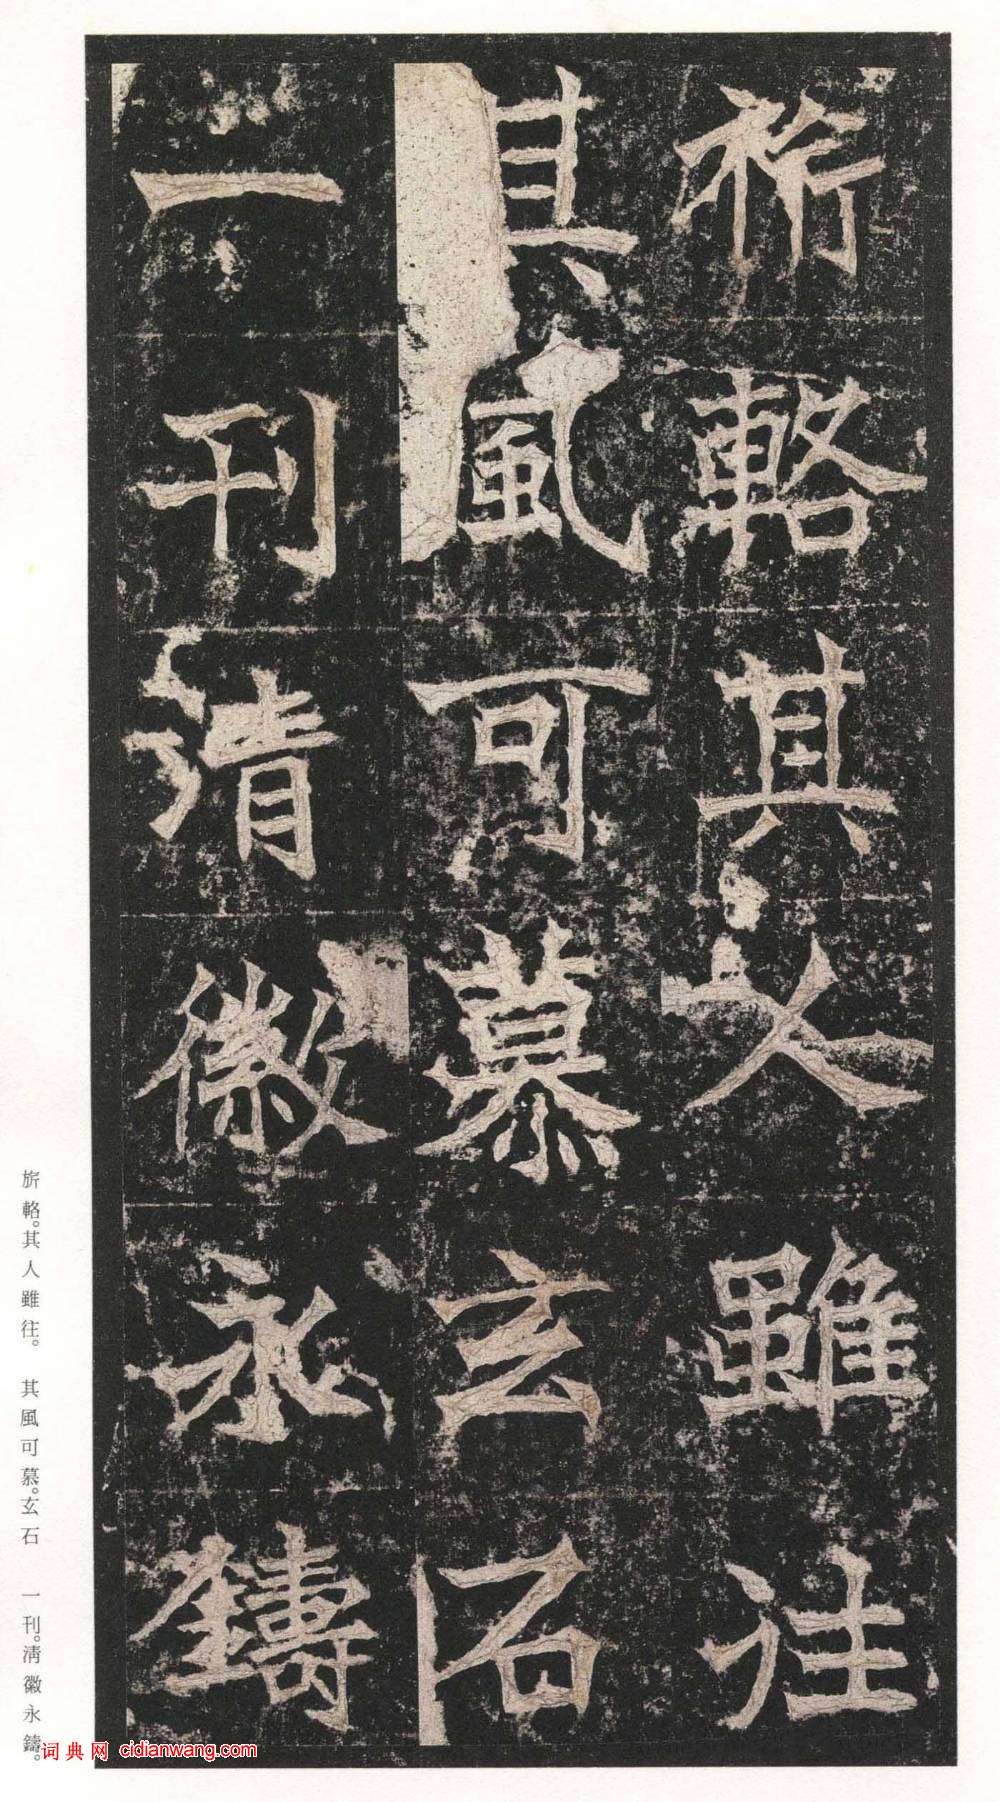 旂輅其人雖往
其風可慕玄石
一刊清徽永鑄
旂輅。其人雖往。 其風可慕。玄石 一刊。清徽永鑄。
词典网 cidianwang.com